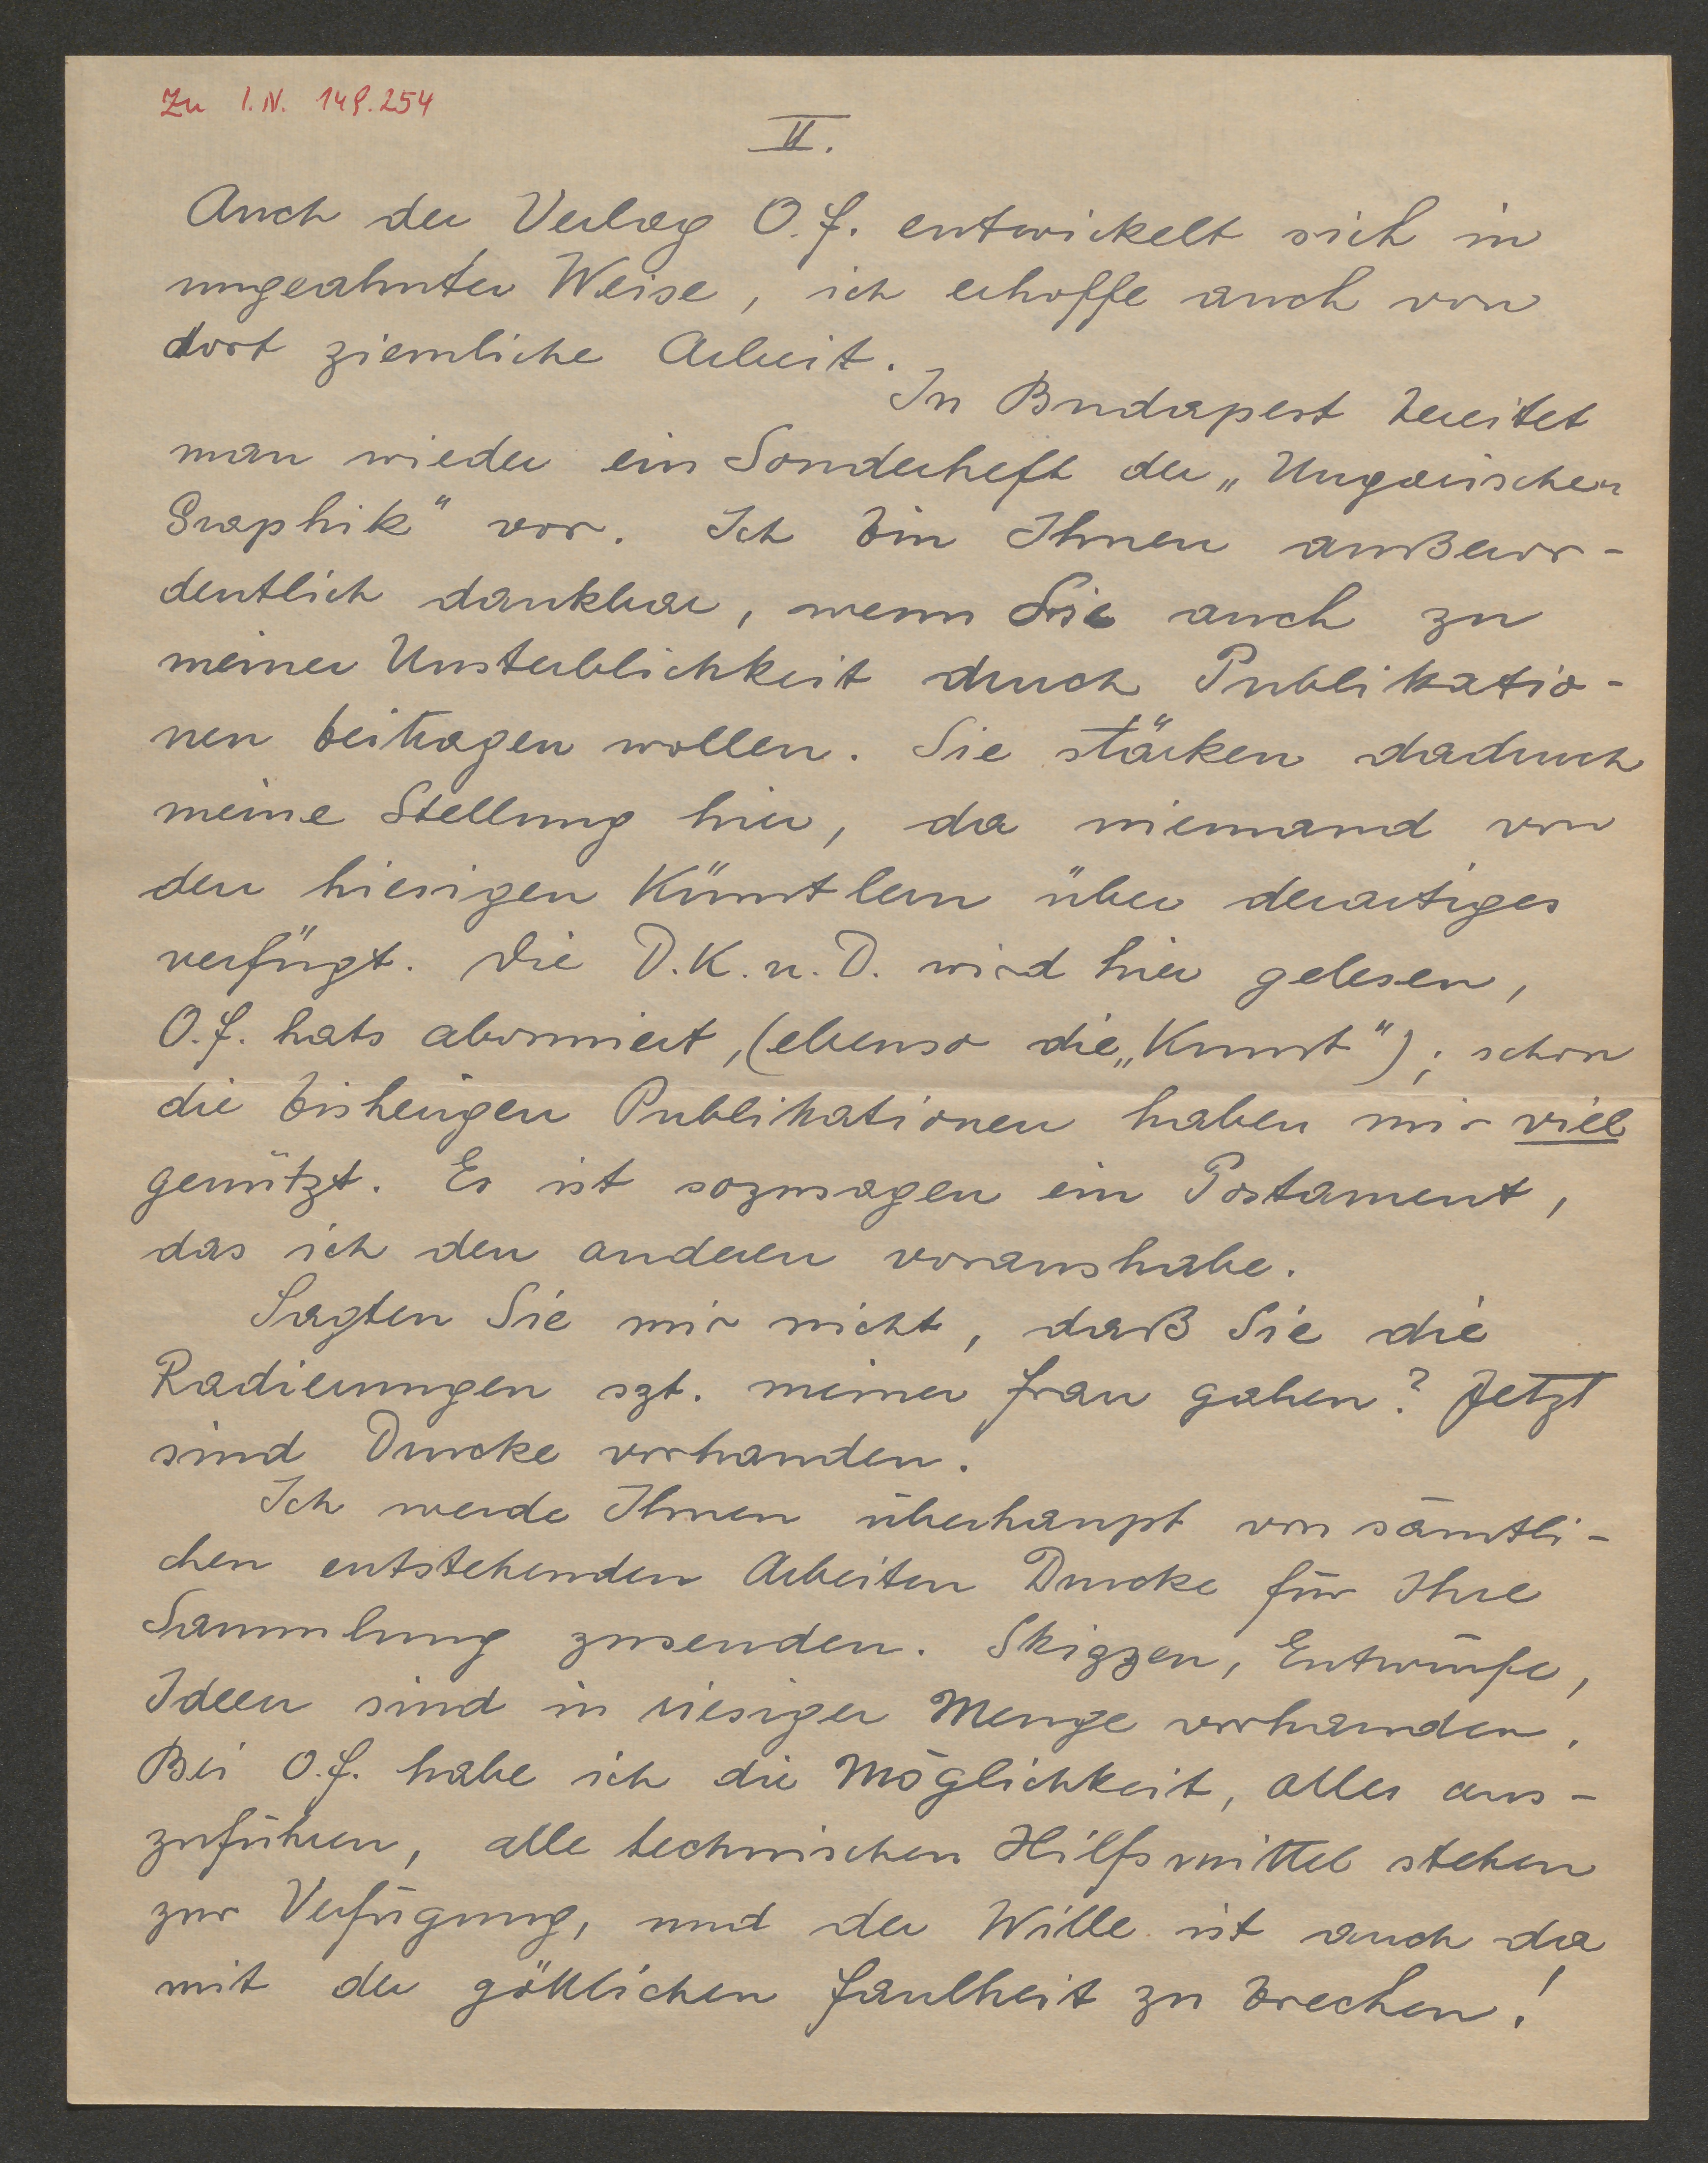 Zu I.N. 149.254
II.
Auch der Verlag O.F. entwickelt sich in
ungeahnter Weise, ich erhoffe auch von
dort ziemliche Arbeit.
In Budapest bereitet
man wieder ein Sonderheft der „Ungarischen
Graphik" vor. Ich bin Ihnen außeror-
dentlich dankbar, wenn Sie auch zu
meiner Unsterblichkeit durch Publikatio-
nen beitragen wollen. Sie stärken dadurch
meine Stellung hier, da niemand von
den hiesigen Künstlern über derartiges
verfügt. Die D.K.u.D. wird hier gelesen,
O.F. hats abonniert, (ebenso die „Kunst"); schon
die bisherigen Publikationen haben mir viel
genützt. Es ist sozusagen ein Postament,
das ich den anderen voraushabe.
Sagten Sie mir nicht, daß Sie die
Radierungen szt. meiner Frau gaben? Jetzt
sind Drucke vorhanden.
Ich werde Ihnen überhaupt von sämtli-
chen entstehenden Arbeiten Drucke für Ihre
Sammlung zusenden. Skizzen, Entwürfe,
Ideen sind in riesiger Menge vorhanden.
Bei O.F. habe ich die Möglichkeit, alles aus-
zuführen, alle technischen Hilfsmittel stehen
zur Verfügung, und der Wille ist auch da
mit der göttlichen Faulheit zu brechen!